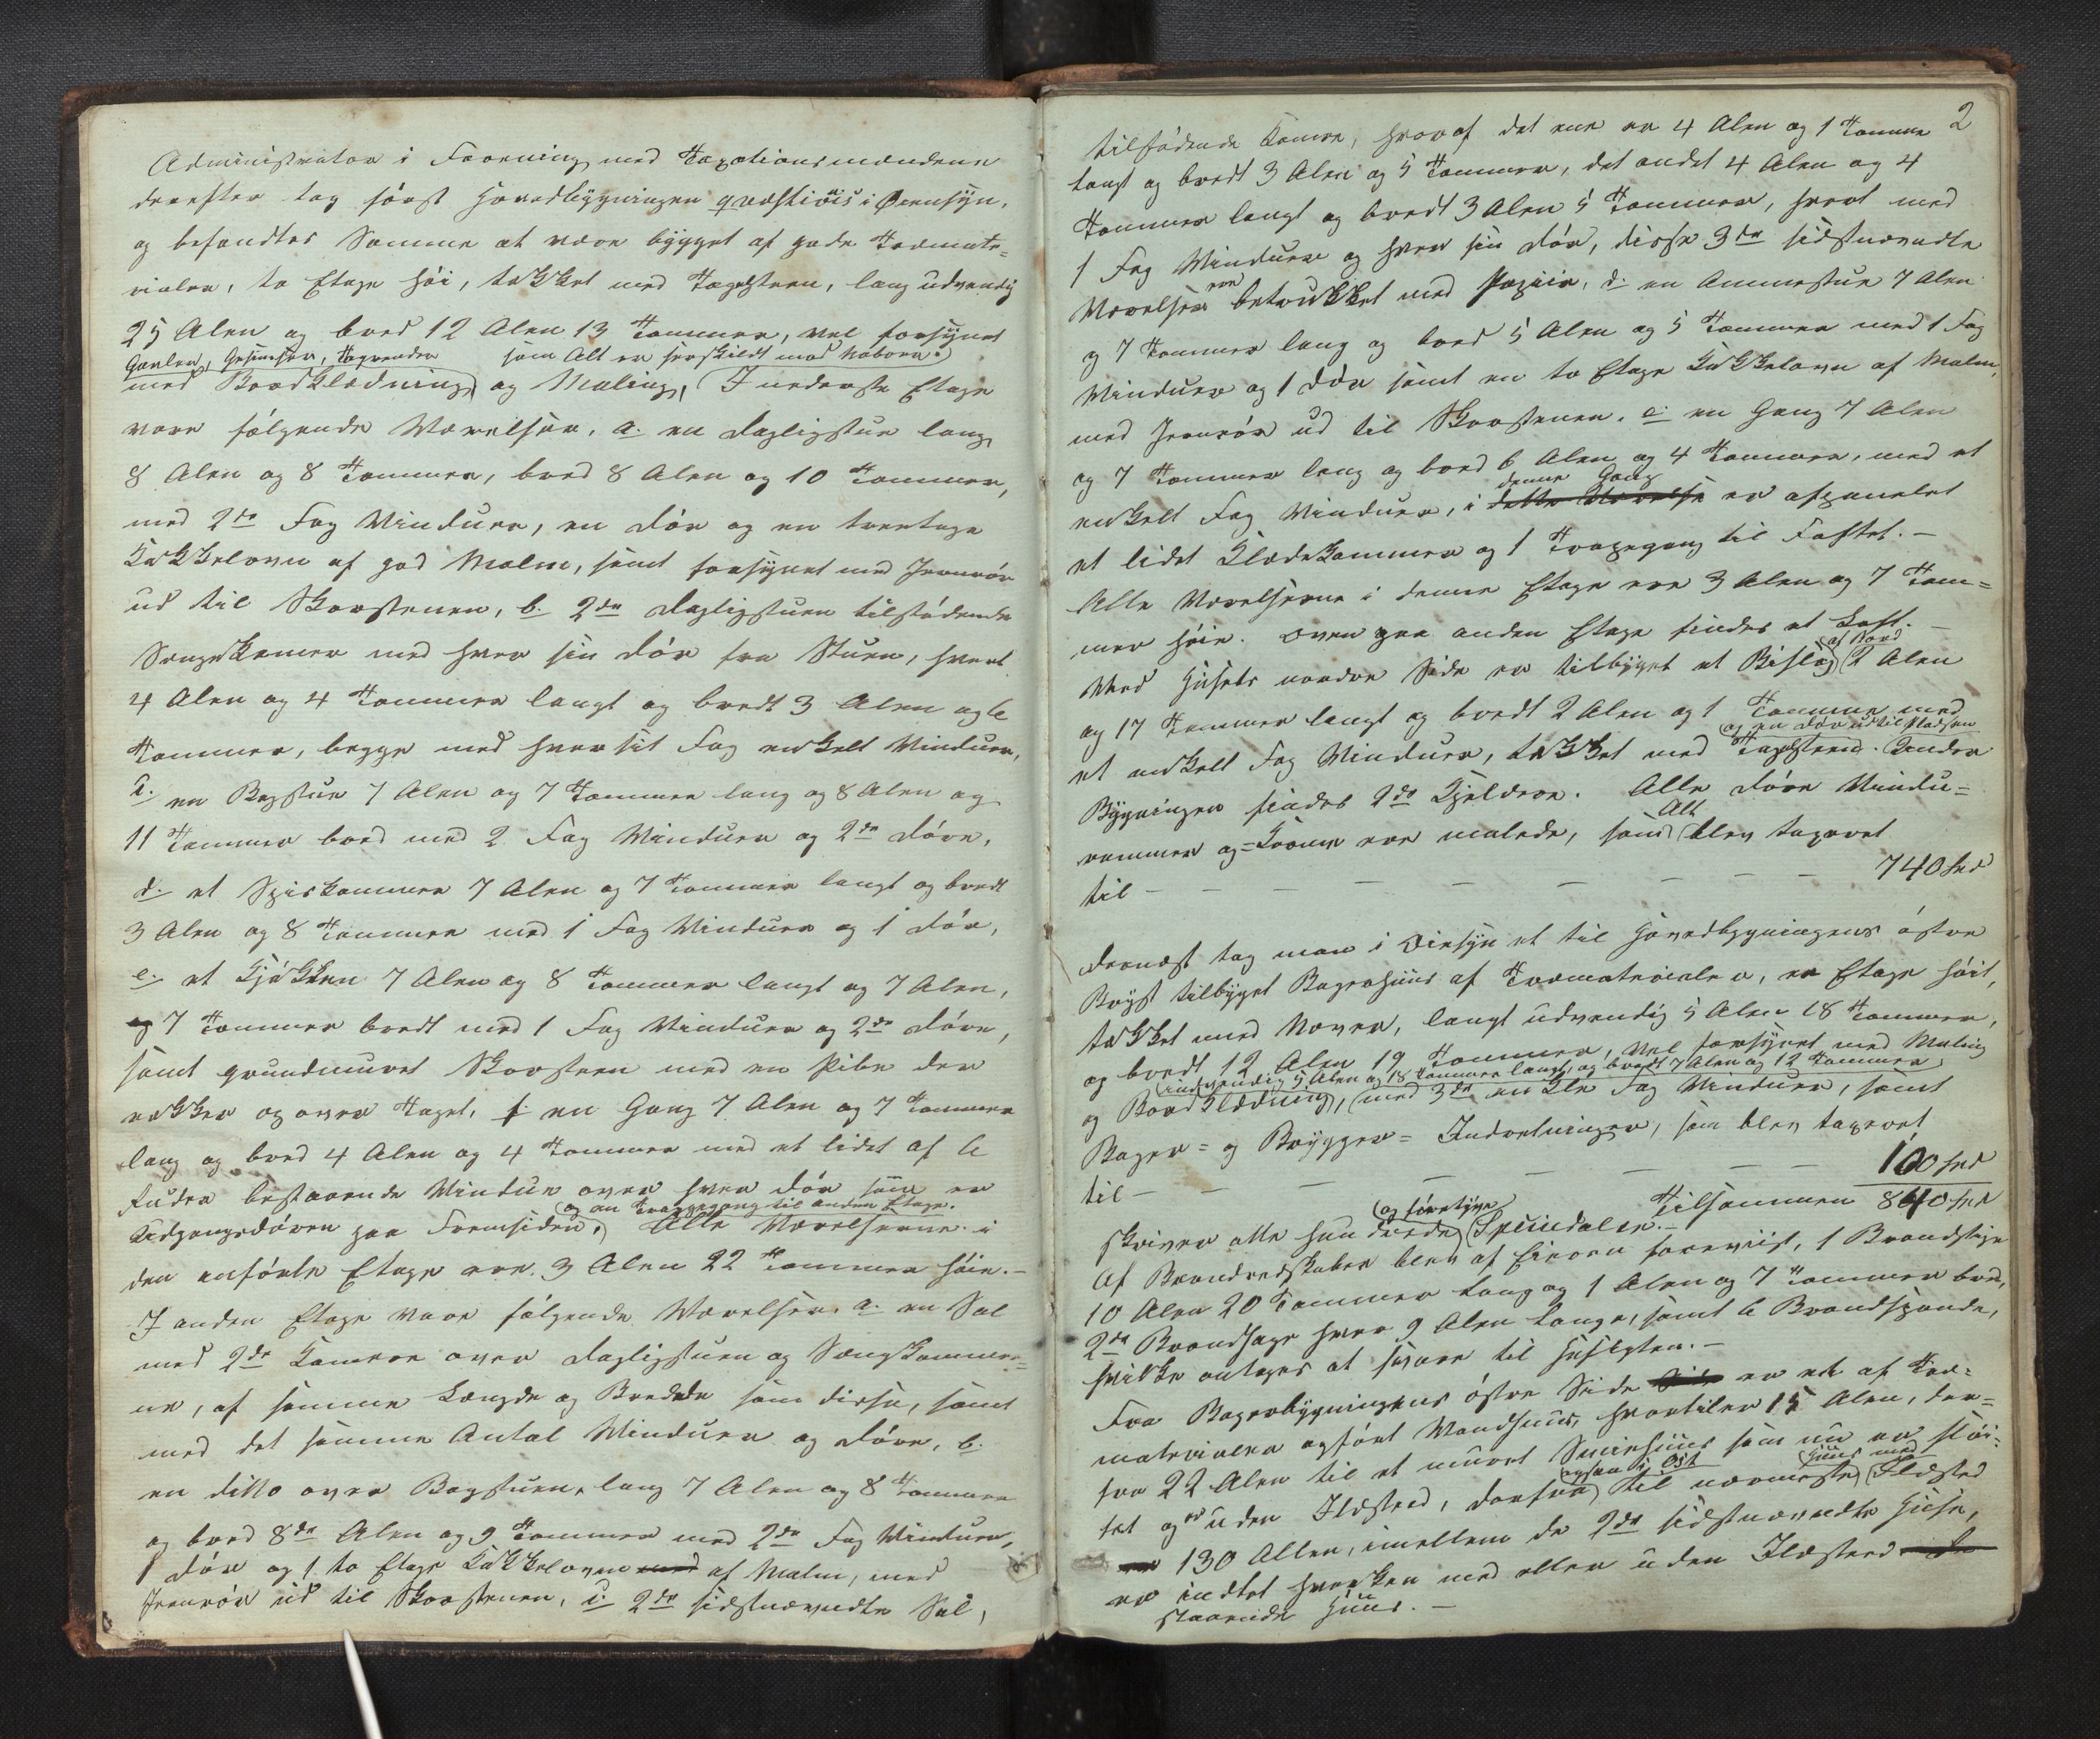 Administrator i Foreening med Taxationsmændene
derefter tog först Hovedbygningen qvæstionis i Øiensyn,
og befandtes Samme at være bygget af gode Træmate=
rialer, to Etage höi, tækket med Tagsteen, lang udvendig
25 Alen og bred 12 Alen 13 Tommer, vel forsynet
Gavler, Gesimser, Tagrender som Alt er særskildt med Naboen.
med Bordklædning og Maling, I nederste Etage
vare fölgende Værelser, a. en Dagligstue lang
8 Alen og 8 Tommer, bred 8 Alen og 10 Tommer,
med 2de Fag Vinduer, en Dör og en treetage
Kakkelovn af god Malm, samt forsynet med Jernrör
ud til Skorstenen, b. 2de Dagligstuen tilstödende
Sengekamre med hver sin Dör fra Stuen, hvert
4 Alen og 4 Tommer langt og bredt 3 Alen og 6
Tommer, begge med hver sit Fag enkelt Vinduer,
c. en Bagstue 7 Alen og 7 Tommer lang og 8 Alen og
11 Tommer bred med 2 Fag Vinduer og 2de Döre,
d. et Spiskammer 7 Alen og 7 Tommer langt og bredt
3 Alen og 8 Tommer med 1 Fag Vinduer og 1 Dör,
e. et Kjökken 7 Alen og 8 Tommer langt og 7 Alen,
og 7 Tommer bredt med 1 Fag Vinduer og 2de Döre,
samt grundmuret Skorsteen med en Pibe der
rækker op over Taget, f. en Gang 7 Alen og 7 Tommer
lang og bred 4 Alen og 4 Tommer med et lidet af 6
Ruder bestaaende Vindue over hver Dör som er
og en Trappegang til anden Etage.
Udgangsdören paa Fremsiden, Alle Værelserne i
den anförte Etage ere 3 Alen 22 Tommer höie.-
I anden Etage vare fölgende Værelser, a. en Sal
med 2de Kamere over Dagligstuen og Sengkamere=
ne, af samme Længde og Bredde som disse, samt
med det samme Antal Vinduer og Döre, b.
en ditto over Bagstuen, lang 7 Alen og 8 Tommer
og bred 8de Alen og 9 Tommer med 2de Fag Vinduer,
1 Dör og 1 to Etage Kakkelovn med af Malm, med
Jernrör ud til Skorstenen, c. 2de sidstnævndte Sal,
2
tilstödende Kamre, hvoraf det ene er 4 Alen og 1 Tomme
langt og bredt 3 Alen og 5 Tommer, det andet 4 Alen og 4
Tommer langt og bredt 3 Alen 5 Tommer, hvert med
1 Fag Vinduer og hver sin Dör, disse 3de sidstnævndte
Værelser ere betrukket med Papiir, d. en Ammestue 7 Alen
og 7 Tommer lang og bred 5 Alen og 5 Tommer med 1 Fag
Vinduer og 1 Dör samt en to Etage Kakkelovn af Malm,
med Jernrör ud til Skorstenen. e. en Gang 7 Alen
og 7 Tommer lang og bred 6 Alen og 4 Tommer, med et
denne Gang
enkelt Fag Vinduer, i dette Værelse er afpanelet
et lidet Klædekammer og 1 Trapegang til Loftet.-
Alle Værelserne i denne Etage ere 3 Alen og 7 Tom=
mer höie. Oven paa anden Etage findes et Loft.-
af Bord
Ved Husets nordre Side er tilbygt et Bislag 2 Alen
og 17 Tommer langt og bredt 2 Alen og 1 Tomme med
og en Dör ud til Pladsen
et enkelt Fag Vinduer, tækket med Tagsteen. Under
Bygningen findes 2de Kjeldere. Alle Döre Vindu=
Alt
rammer og =Karme ere malede, som blev taxeret
til - - - - - - - - 740 Spd
Dernæst tog man i Øiesyn et til Hovedbygningens östre
Bryst tilbygt Bagerhuus af Træmaterialer, en Etage höit,
tækket med Næver, langt udvendig 5 Alen 18 Tommer,
og bredt 12 Alen 19 Tommer, vel forsynet med Maling
indvendig 5 Alen og 18 Tommer langt, og bredt 7 Alen og 12 Tommer
og Bordklædning, med 3de enkle Fag Vinduer, samt
Bager= og Brygger= Indretninger, som blev taxeret
til - - - - - - 100 Spd
Tilsammen 840 Spd
og fireti
skriver otte hundrede Speciedaler.-
Af Brandredskaber blev af Eieren foreviist, 1 Brandstige
10 Alen 20 Tommer lang og 1 Alen og 7 Tommer bred,
2de Brandhage hver 9 Alen lange, samt 6 Brandspande,
hvilke antages at svare til Hensigten.-
Fra Bagerbygningens östre Side Side er et af Træ=
materialer opfört Vandhuus, hvortil er 15 Alen, der=
fra 22 Alen til et muret Smiehuus som nu er slöi=
fet og er uden Ildsted, derfra til nærmeste Huus med Ildsted
130 Allen, imellem de 2de sidstnævndte Huse,
er indtet hverken med eller uden Ildsted
staaende Huus.-